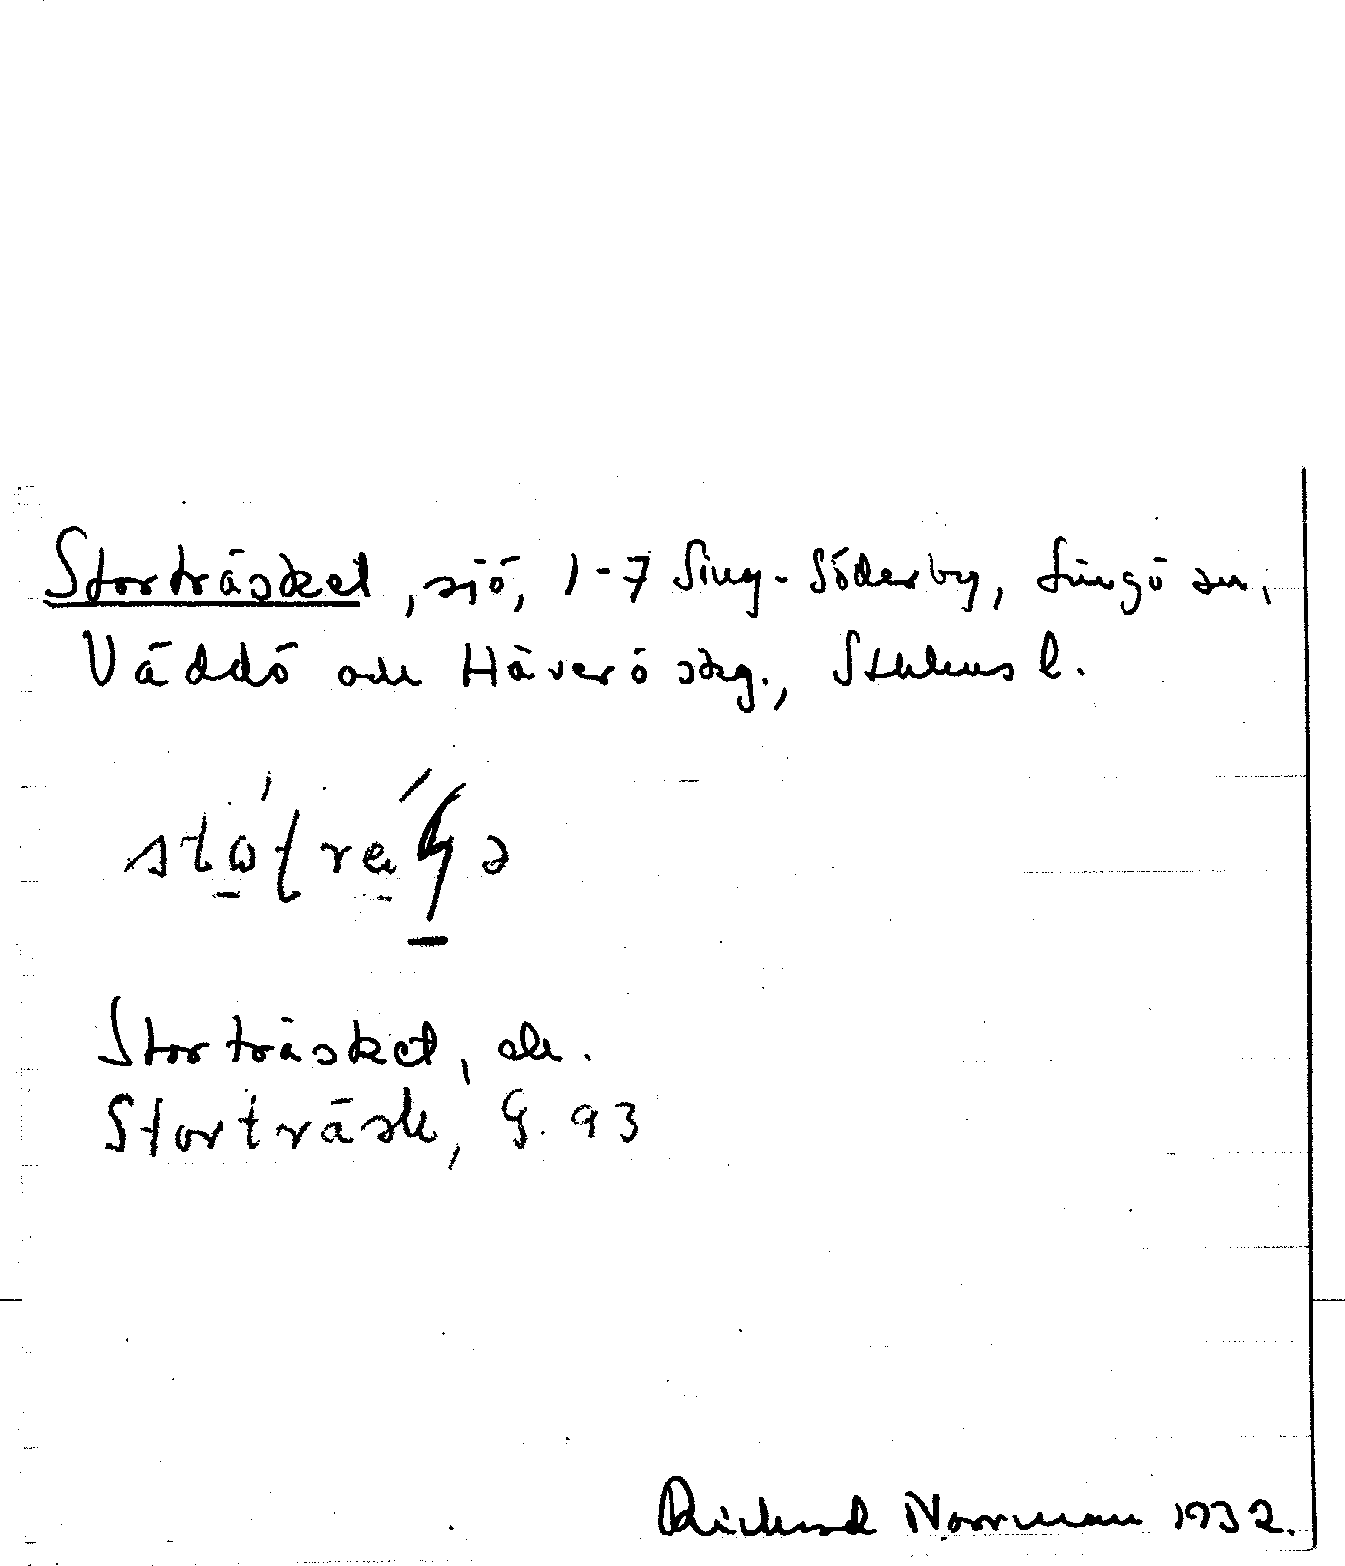 Storträsket, sjö, 1-7 Sing-Söderby, Singö sn,
Väddö och Häverö skg., Sthlms l.
Storträsket, ek.
Storträsk, G. 93
Richard Norrman 1932.